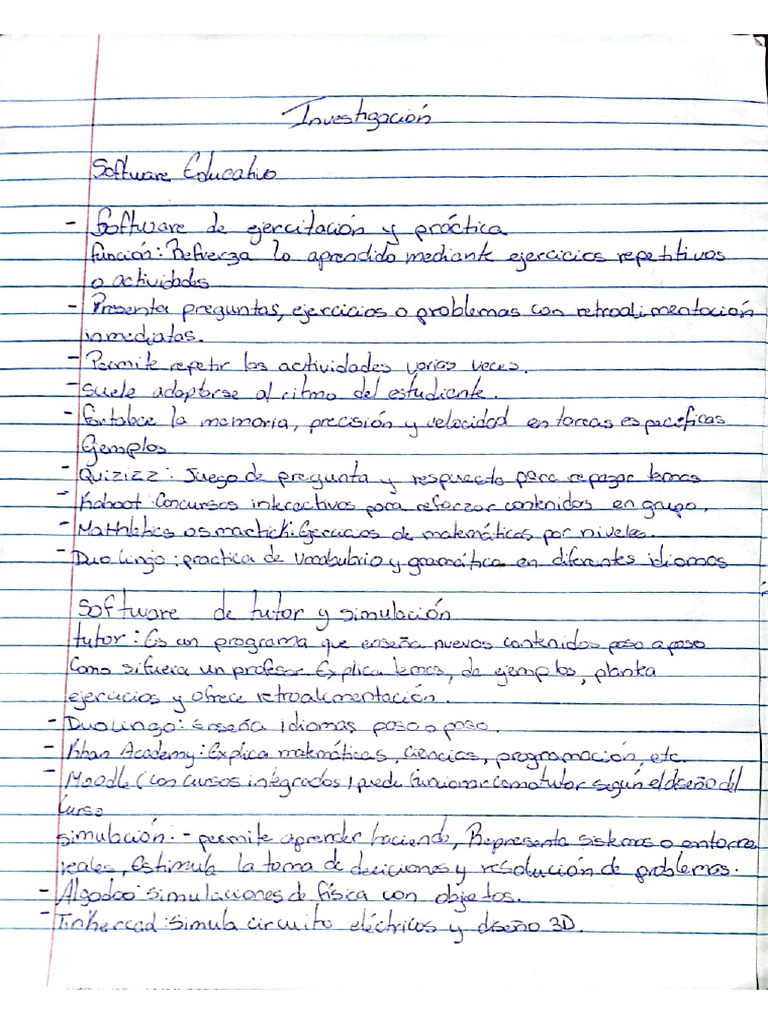 Investigación
Software Educativo
- Software de ejercitación y práctica
función: Refuerza lo aprendido mediante ejercicios repetitivos
o actividades
- Presenta preguntas, ejercicios o problemas con retroalimentación
inmediatas.
- Permite repetir las actividades varias veces.
- Suele adaptarse al ritmo del estudiante.
- Fortalece la memoria, precisión y velocidad en tareas especificas
Ejemplos
- Quizizz: Juego de pregunta y respuesta para repazar temas
- Kahoot: Concursos interactivos para reforzar contenidos en grupo.
- Ejercicios de matemáticas por niveles.
- Duolingo: practica de vocabulario y gramática en diferentes idiomas
Software de tutor y simulación
tutor: Es un programa que enseña nuevos contenidos paso a paso
Como si fuera un profesor. Explica temas, da ejemplos, plantea
ejercicios y ofrece retroalimentación.
- Duolingo: Enseña Idiomas paso a paso.
- Khan Academy: Explica matemáticas, ciencias, programación, etc.
- Moodle (con cursos integrados) puede funcionar como tutor según el diseño del
curso
simulación: - permite aprender haciendo, Representa sistemas o entornos
reales, Estimula la toma de deciciones y resolución de problemas.
- Algodoo: simulaciones de física con objetos.
- Tinkercad: simula circuito eléctricos y diseño 3D.